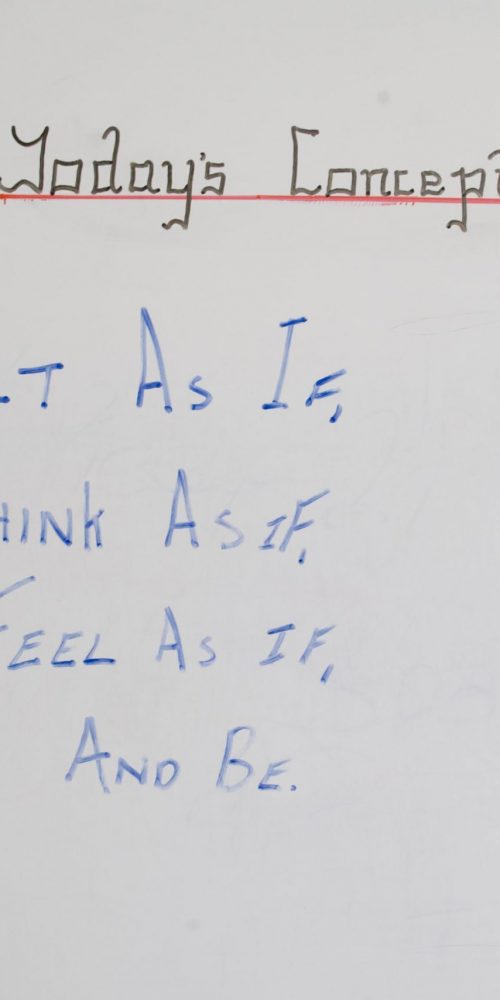 Today's Concept
As If,
As if,
Feel As if,
And Be.